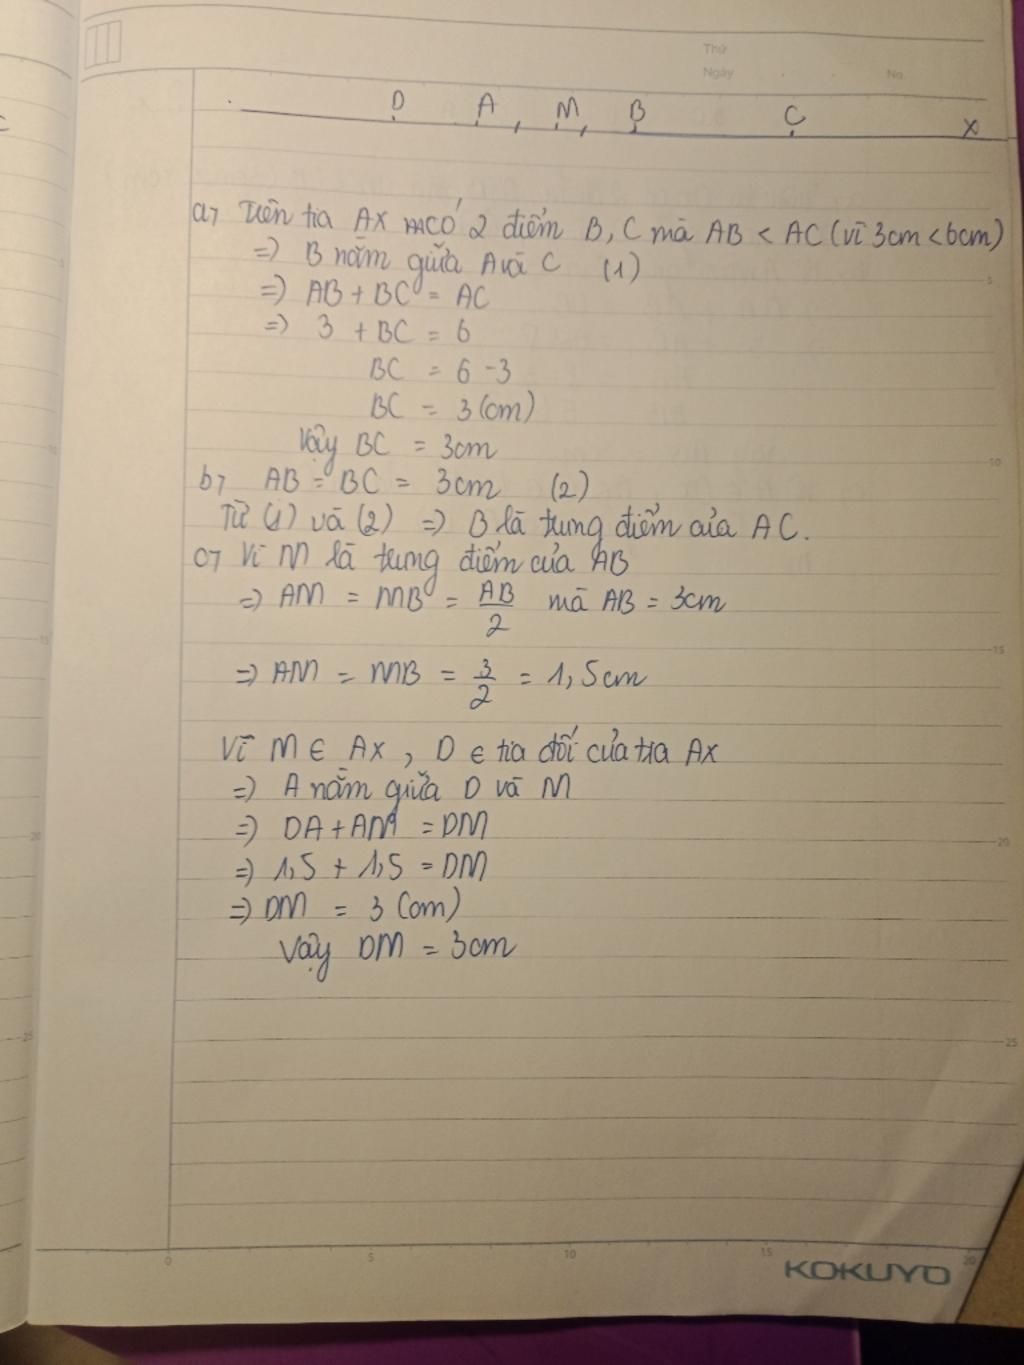 Thứ
Ngày
No.
D A M B C x
a, Trên tia Ax có 2 điểm B, C mà AB < AC (vì 3cm < 6cm)
=) B nằm giữa A và C (1)
=) AB + BC = AC
=) 3 + BC = 6
BC = 6 - 3
BC = 3 (cm)
Vậy BC = 3cm
b, AB = BC = 3cm (2)
Từ (1) và (2) =) B là trung điểm của AC.
c, Vì M là trung điểm của AB
=) AM = MB = AB/2 mà AB = 3cm
=) AM = MB = 3/2 = 1,5cm
Vì M ∈ Ax, D ∈ tia đối của tia Ax
=) A nằm giữa D và M
=) DA + AM = DM
=) 1,5 + 1,5 = DM
=) DM = 3 (cm)
Vậy DM = 3cm
5
10
15
20
25
0 5 10 15 20
KOKUYO